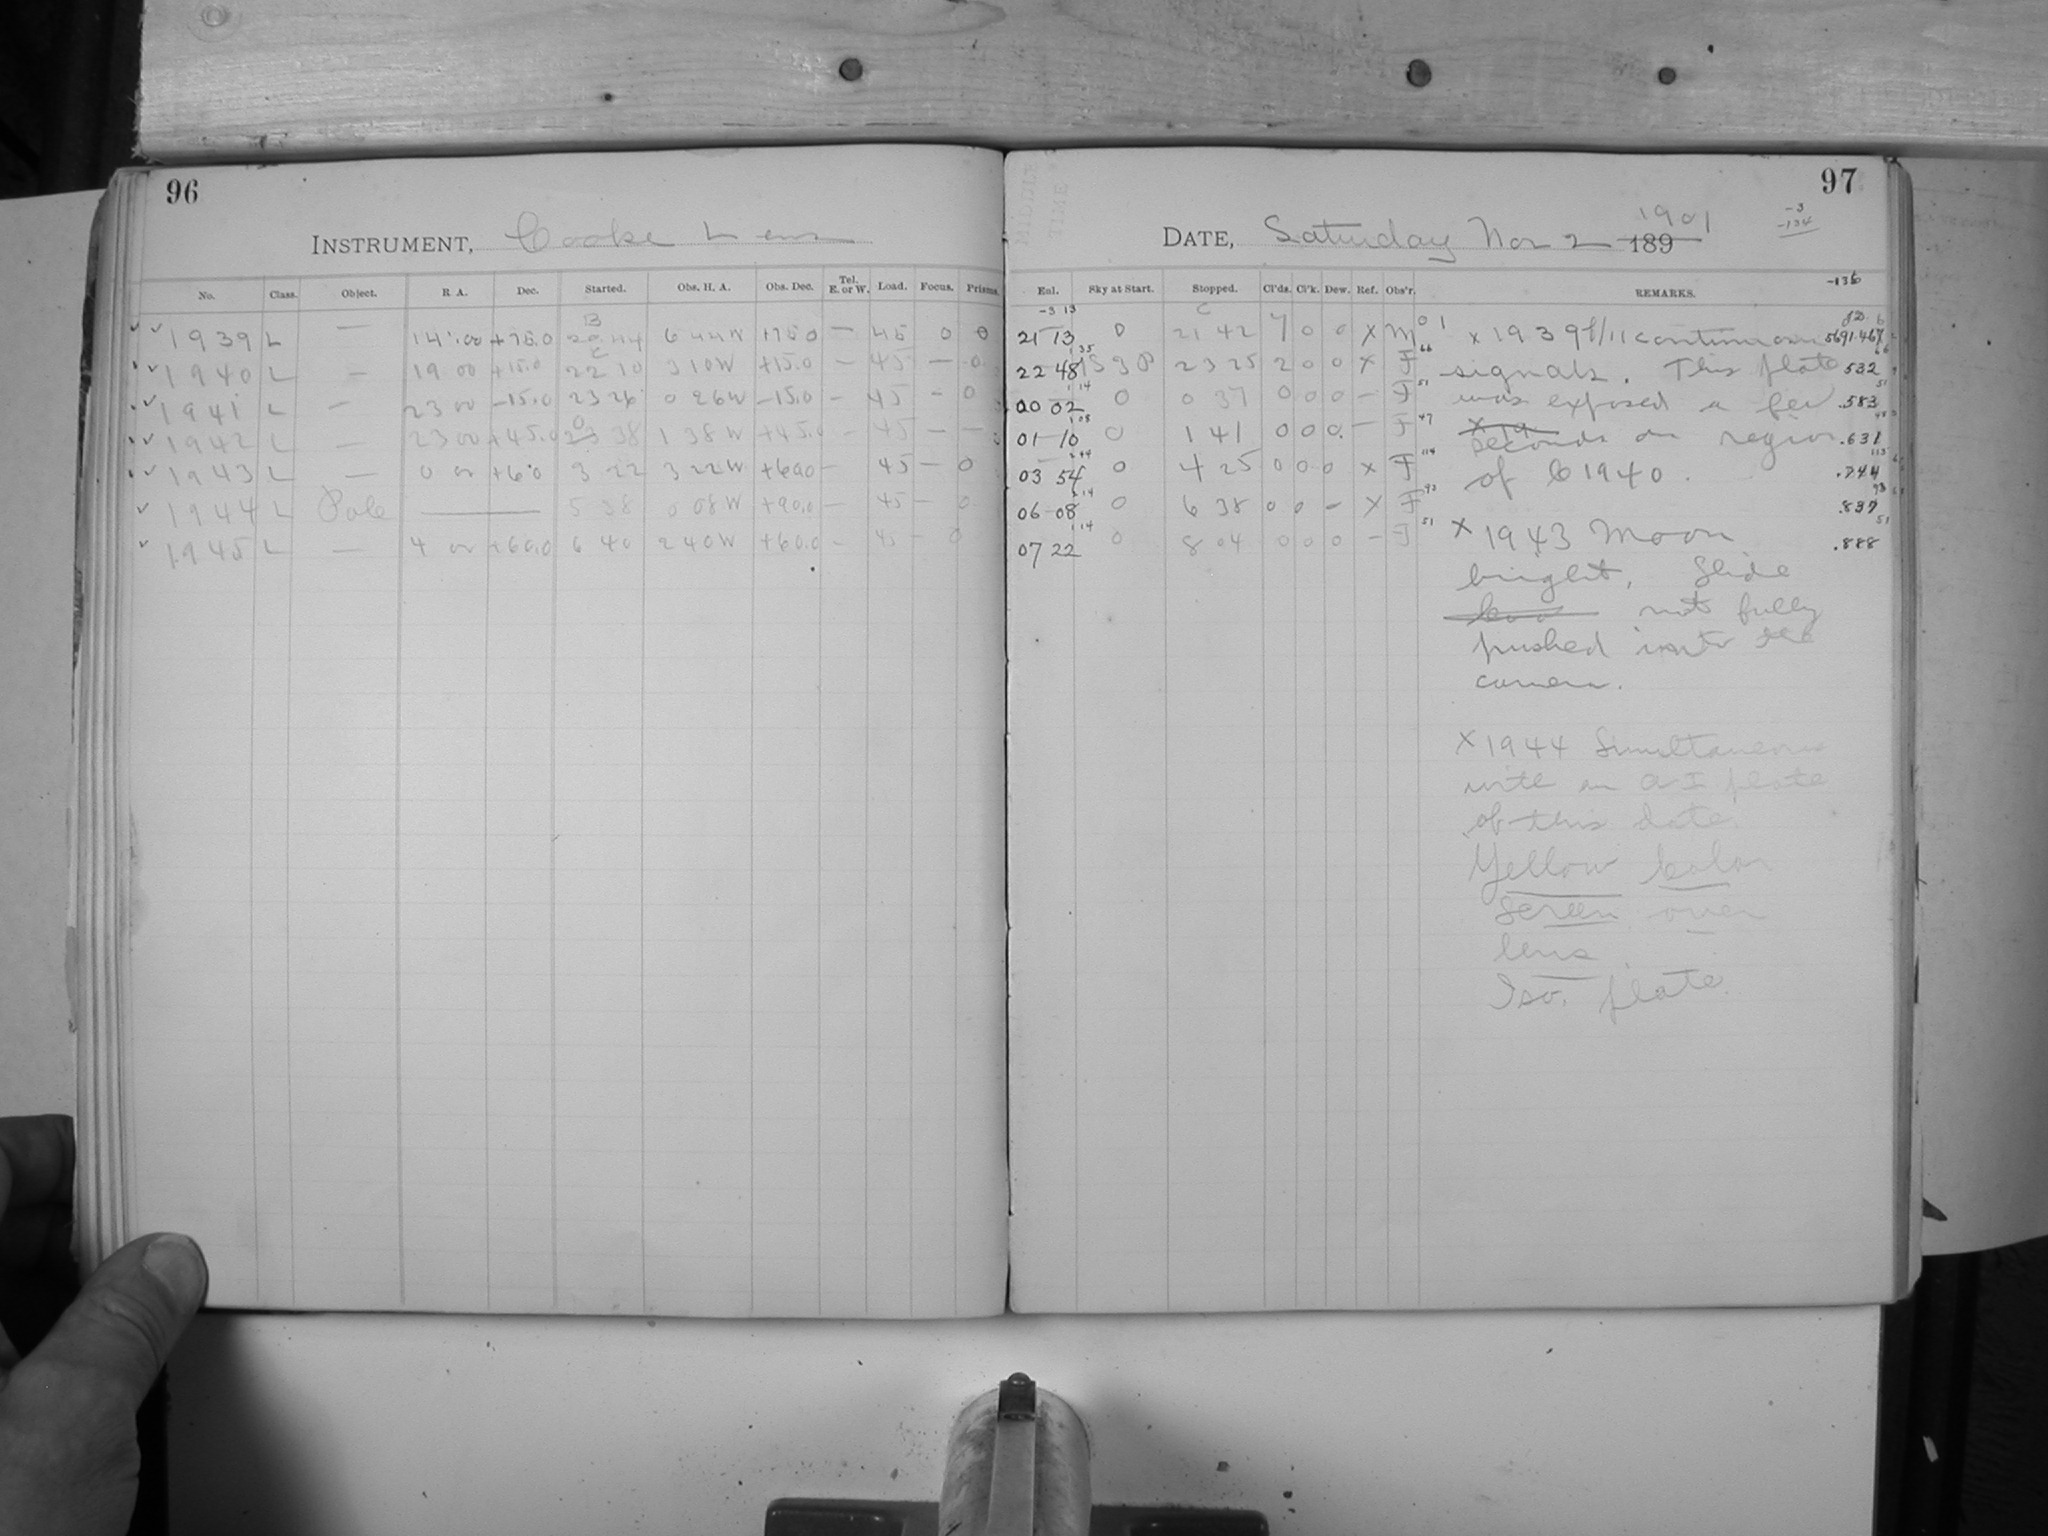 96
INSTRUMENT, Cooke Lens
No. Class. Object. R. A. Dec. Started. Obs. H. A. Obs. Dec. Tel. E. or W. Load. Focus. Prisms.
1939 L — 14 00 +75.0 20 44 6 44 W +75.0 — 45 0 0
1940 L — 19 00 +15.0 22 10 3 10 W +15.0 — 45 — 0
1941 L — 23 00 −15.0 23 26 0 26 W −15.0 — 45 — 0
1942 L — 23 00 +45.0 0 38 1 38 W +45.0 — 45 — —
1943 L — 0 00 +60 3 22 3 22 W +60.0 — 45 — 0
1944 L Pole —— 5 38 0 08 W +90.0 — 45 — 0
1945 L — 4 00 +60.0 6 40 2 40 W +60.0 — 45 — 0
97
DATE, Saturday Nov 2 189 1901
-3
-134
-136
Exl. Sky at Start. Stopped. Cl'ds. Cl'k. Dew. Ref. Obs'r. REMARKS.
-3 13
21 13 0 21 42 7 0 0 X M
22 48 23 25 2 0 0 X F
00 02 0 0 37 0 0 0 — F
01 10 0 1 41 0 0 0 — F
03 54 0 4 25 0 0 0 X F
06 08 0 6 38 0 0 — X F
07 22 0 8 04 0 0 0 — F
x 1939 f/11 continuous
signals. This plate
was exposed a few
seconds on region
of C 1940.
JD
5691.467
.532
.583
.631
.744
.837
.888
x 1943 Moon
bright, Slide
not fully
pushed into the
camera.
x 1944 Simultaneous
with an A I plate
of this date.
Yellow Color
Screen over
lens
Iso. plate.